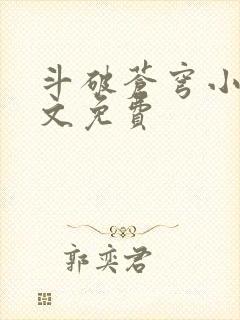 斗破蒼穹小
文免費
郭奕君